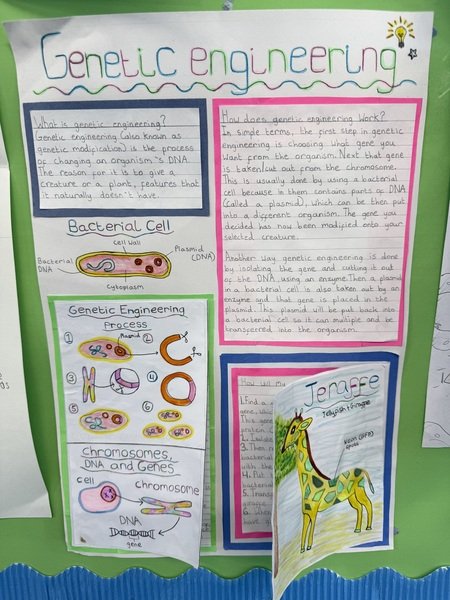 Genetic engineering
What is genetic engineering?
Genetic engineering (also known as
genetic modification) is the process
of changing an organism's DNA.
The reason for it is to give a
creature or a plant, features that
it naturally doesn't have.
How does genetic engineering work?
In simple terms, the first step in genetic
engineering is choosing what gene you
want from the organism. Next that gene
is taken/cut out from the chromosome.
This is usually done by using a bacterial
cell because in them contains parts of DNA
(called a plasmid), which can be then put
into a different organism. The gene you
decided has now been modified onto your
selected creature.
Another way genetic engineering is done
by isolating the gene and cutting it out
of the DNA, using an enzyme. Then a plasmid
in a bacterial cell is also taken out by an
enzyme and that gene is placed in the
plasmid. This plasmid will be put back into
a bacterial cell so it can multiple and be
transferred into the organism.
Bacterial Cell
Cell wall
Plasmid
(DNA)
Bacterial
DNA
Cytoplasm
Genetic Engineering
Process
1
Plasmid
2
3
4
5
6
Chromosomes,
DNA and Genes
Cell
Chromosome
DNA
gene
How will my
1. Find a
gene, whic
This gene
protein
2. Isolate
3. Then r
bacterial
with the
4. Put
bacterial
5. Trans
giraffe
6. When
have g
Jeraffe
Jellyfish + Giraffe
Neon (GFP)
spots